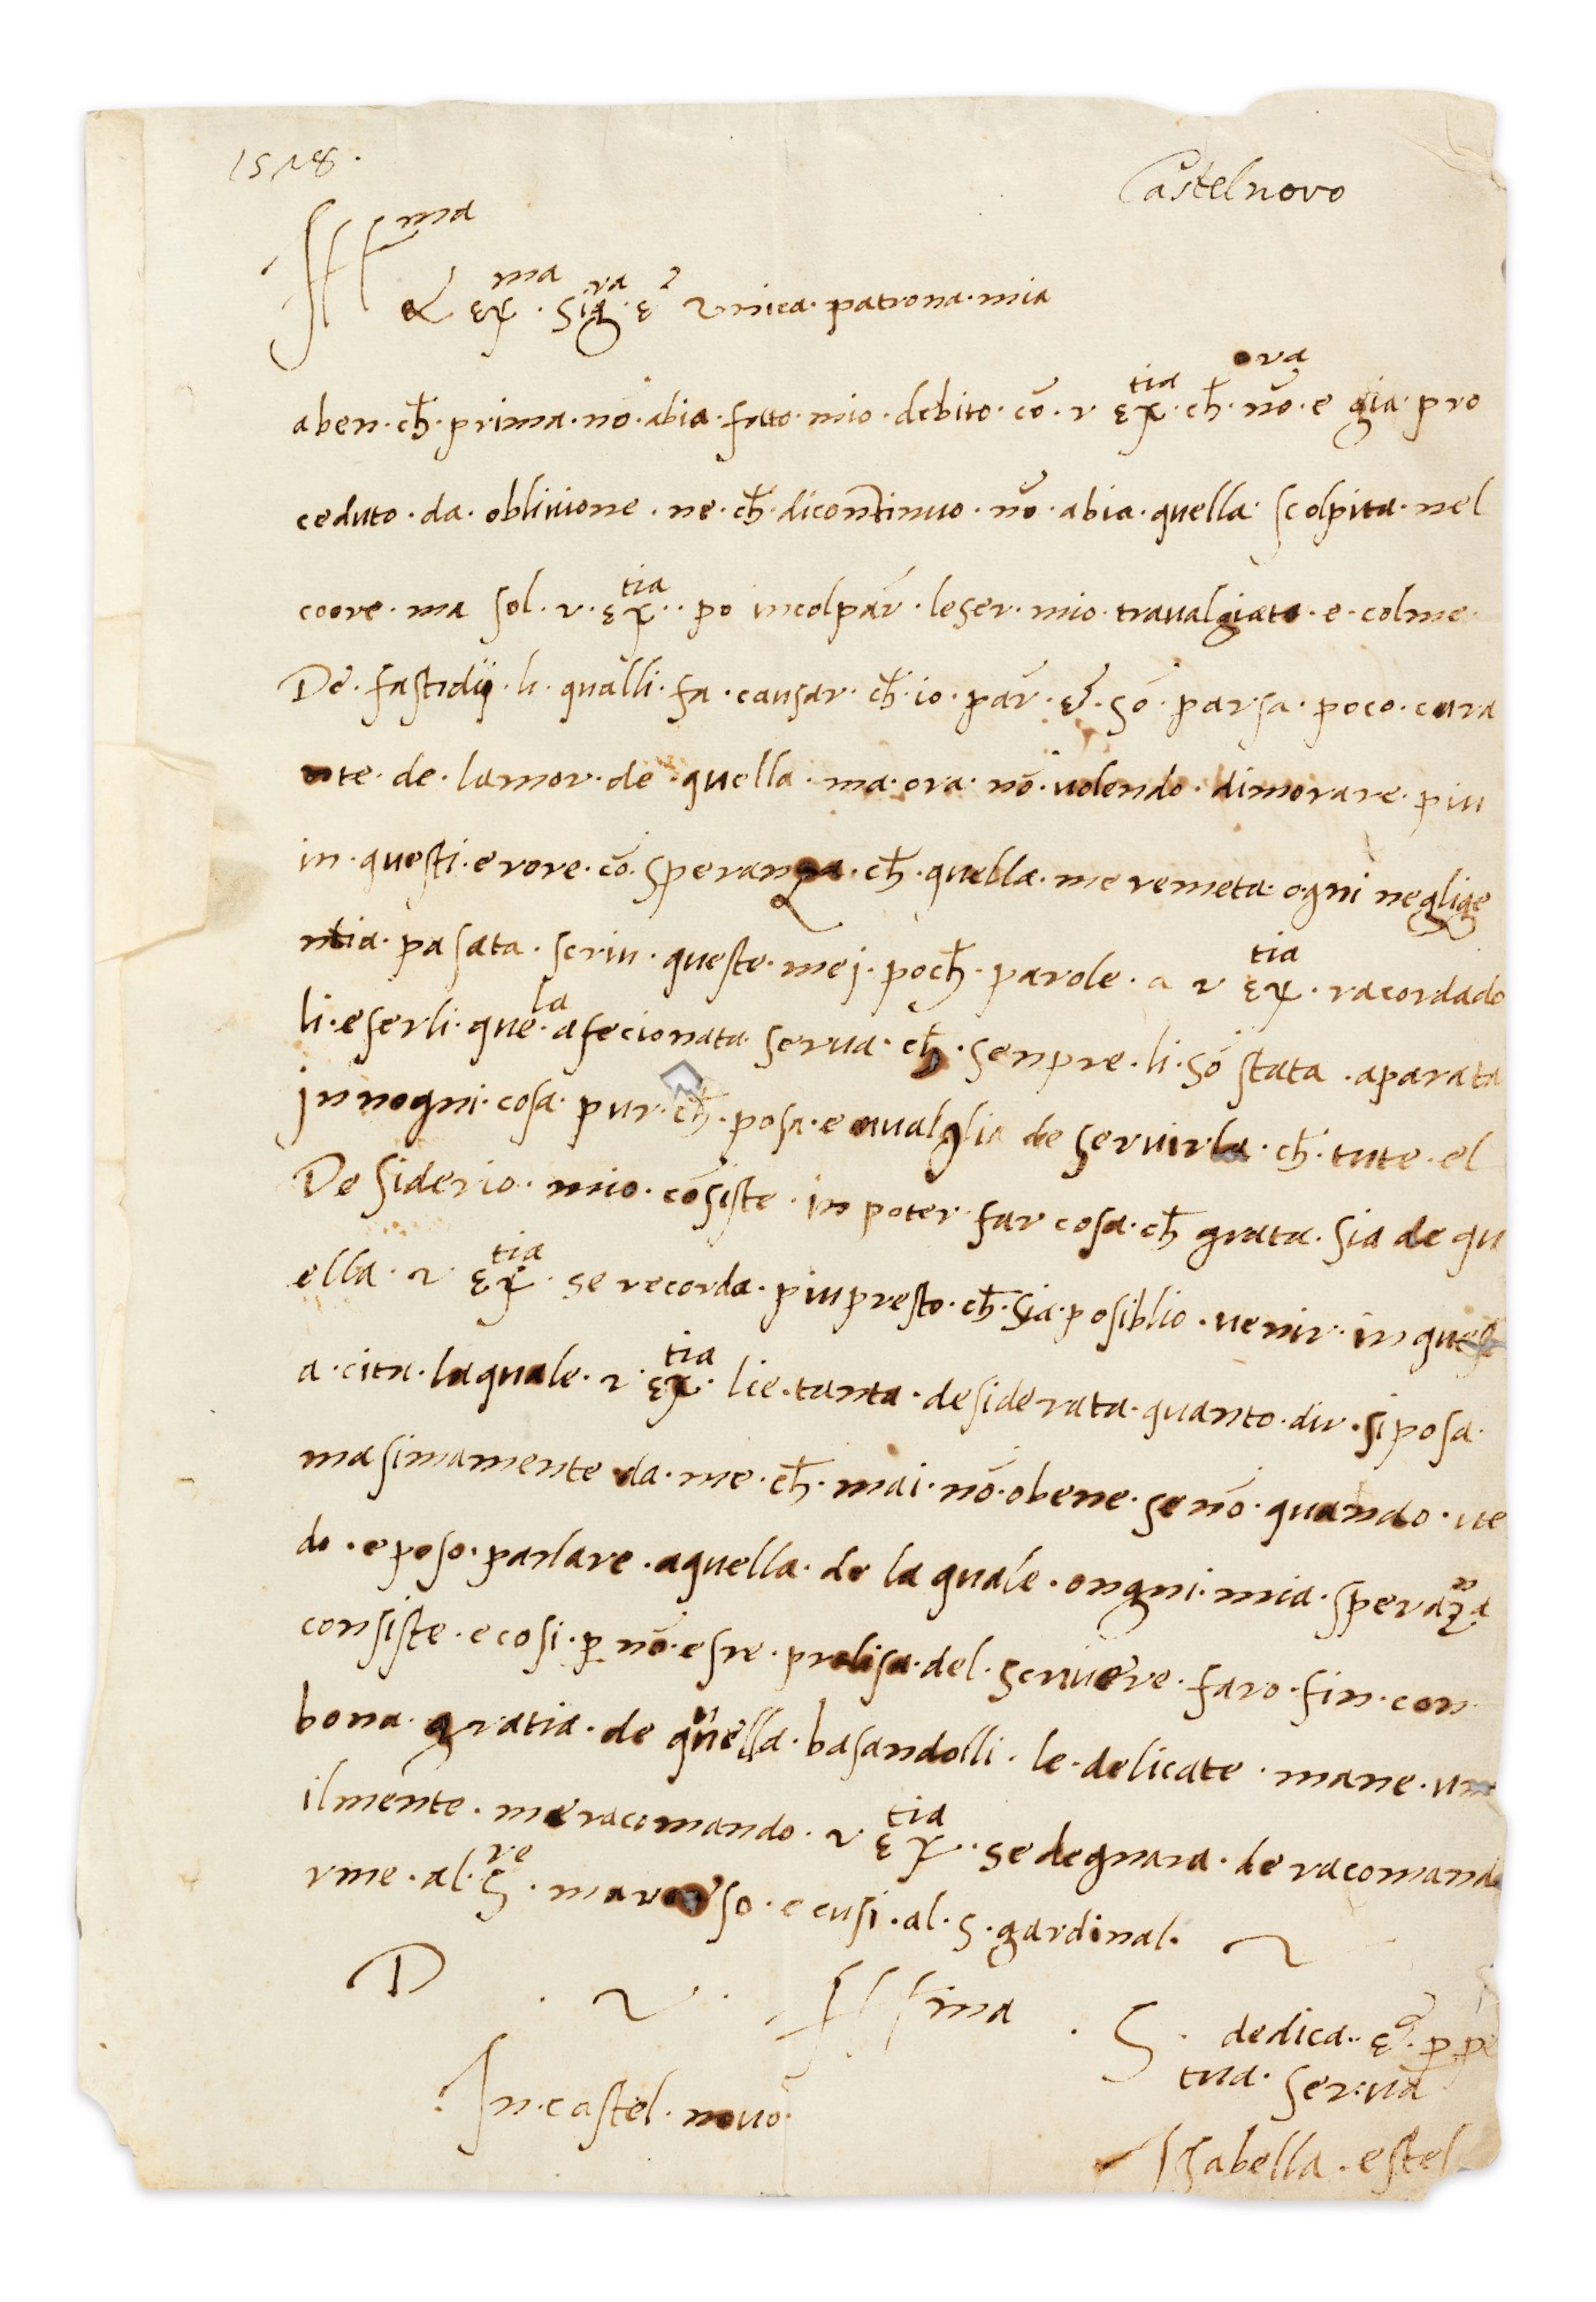 1528.
Castelnovo
Ill ma
& εx ma · Sig ra · ε unica · patrona · mia
aben · ch̄ · prima · nō · abia · fatto · mio · debito · cō · v εx tia · ch̄ · ora nō · e gia · pro
ceduto · da · oblivione · ne · ch̄ · dicontinuo · nō · abia · quella · scolpita · nel
coore · ma sol · v · εx tia · po incolpar̄ · leser · mio · travalgiato · e · colme
De · fastidij · li · qualli · fa · causar · ch̄ · io · par̄ · & · sō · parsa · poco · cura
nte · de · lamor · de · quella · ma · ora · nō · volendo · dimorare · piu
in · questi · erore · cō · speranza · ch̄ · quella · me remeta · ogni neglige
ntia · pasata · scriv · queste · mej · poch̄ · parole · a v εx tia · racordado
li · eserli · que la · afecionata · serva · ch̄ · senpre · li · sō stata · aparata
in nogni · cosa · pur · ch̄ · posa · e · valglia de servirla · ch̄ · tute · el
De siderio · mio · cōsiste · in poter far cosa · ch̄ grata · sia de qu
ella · v εx tia · se recorda · piu presto · ch̄ · sia · posiblio · venir · in quest
a · cita · laquale · v · εx tia · lie · tanta · desiderata · quanto · dir · si posa ·
masimamente da · me · ch̄ · mai · nō · obene · se nō · quando · ve
do · e poso · parlare · aquella · de la quale · ongni · mia · speraza n
consiste · e cosi · p · nō · esre · prolisa · del · scrivere · faro · fin · con
bona · gratia · de quella · basandolli · le · delicate · mane · um
ilmente · me racomando · v εx tia · se degnara · de racomanda
rme · al · S re · marcheso · e cusi · al · S · gardinal ·
D · V · Ill ma · S · dedica · & · p pe
tua · serva
In · castel · novo
Isabella · estel